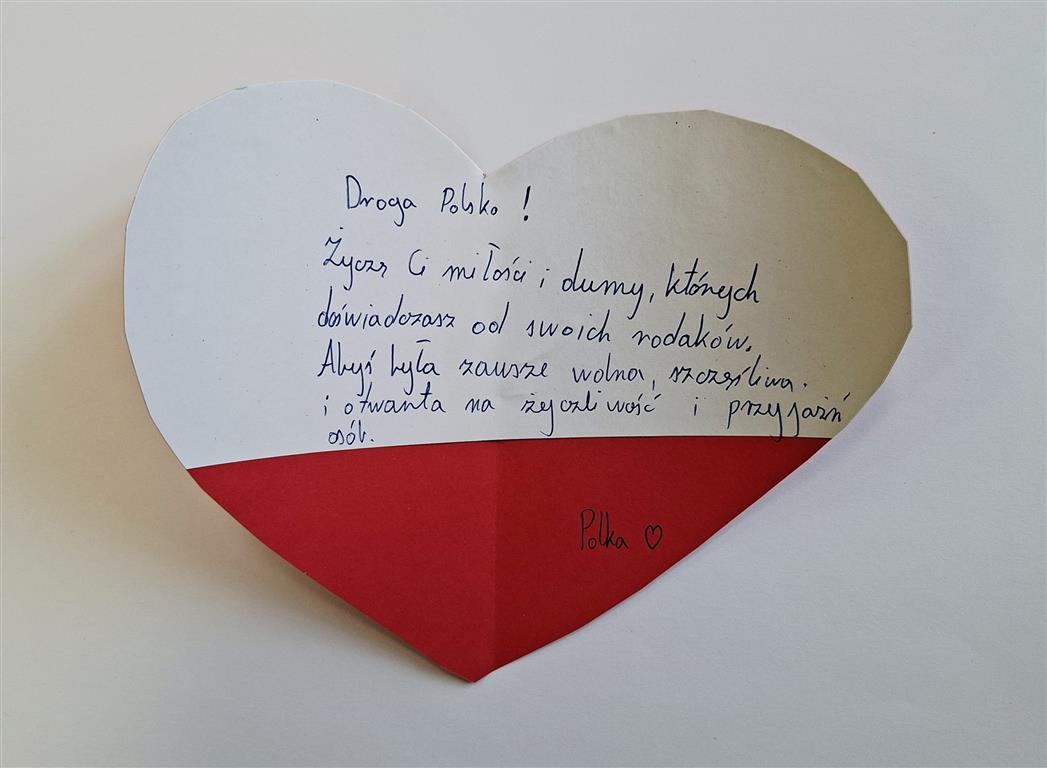 Droga Polsko !
Życzę Ci miłości i dumy, których
doświadczasz od swoich rodaków.
Abyś była zawsze wolna, szczęśliwa.
i otwarta na życzliwość i przyjaźń
osób.
Polka ♡